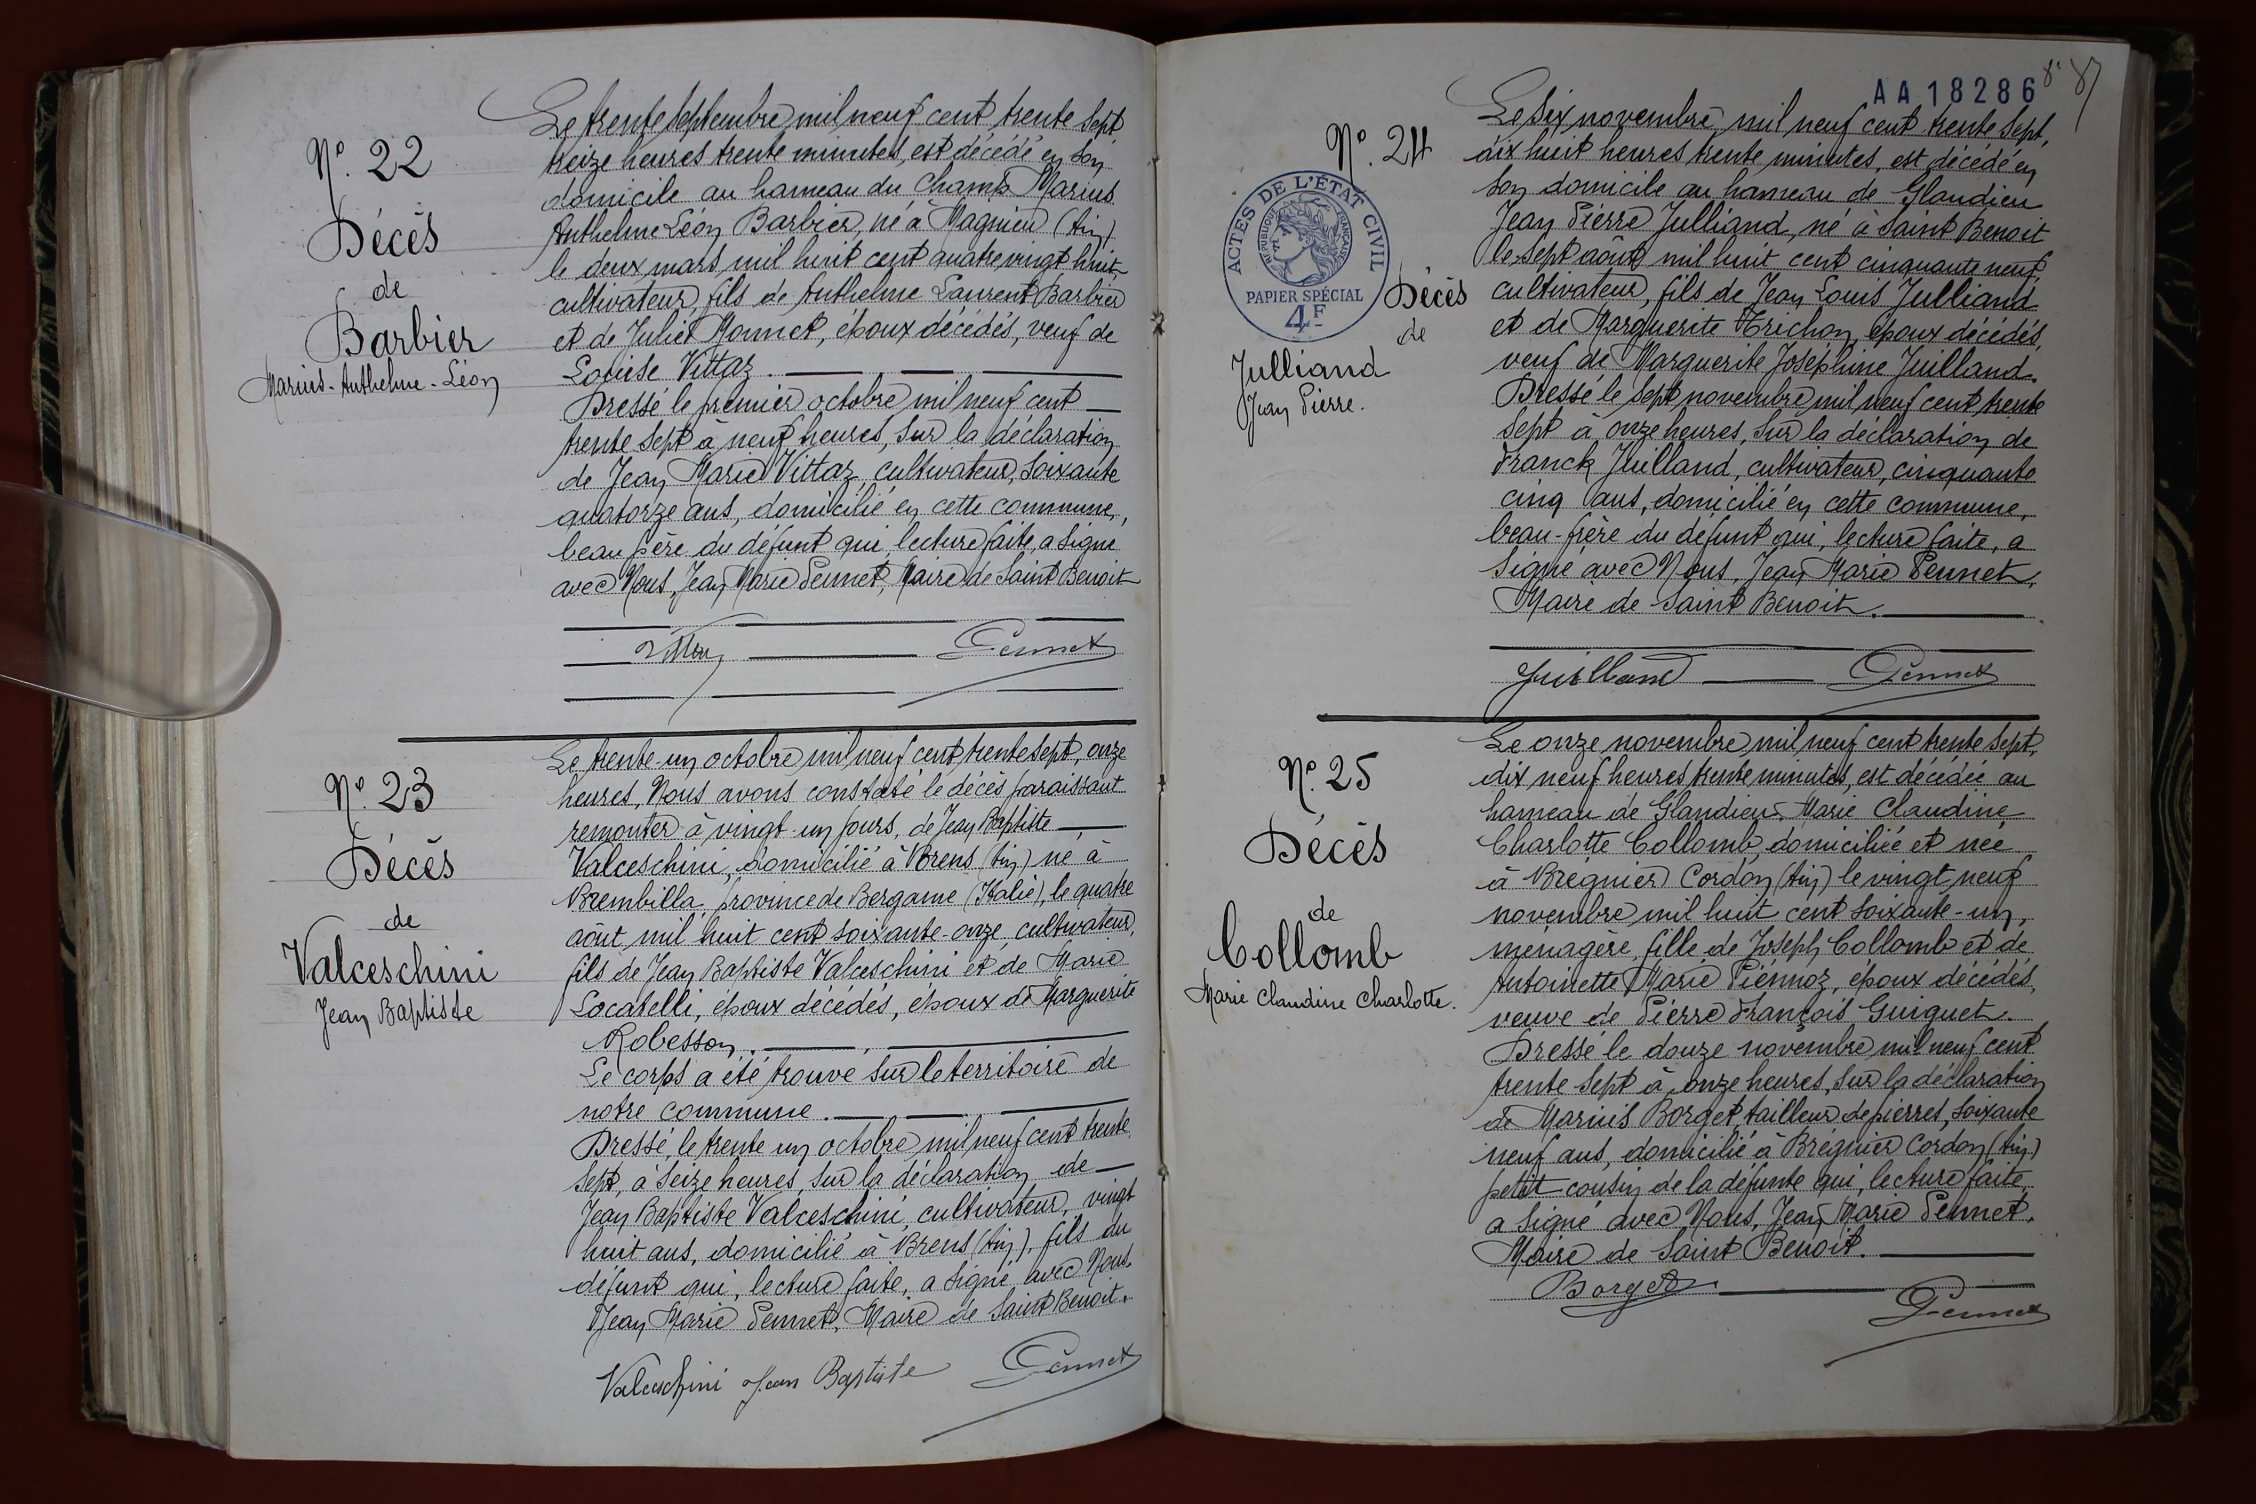 Nº. 22
Décès
de
Barbier
Marius-Anthelme-Léon
Le trente septembre mil neuf cent trente sept
treize heures trente minutes, est décédé en son
domicile au hameau du Champ Marius
Anthelme Léon Barbier, né à Magnieu (Ain)
le deux mars mil huit cent quatre vingt huit
cultivateur, fils de Anthelme Laurent Barbier
et de Julie Monnet, époux décédés, veuf de
Louise Vittaz.
Dressé le premier octobre mil neuf cent
trente sept à neuf heures, sur la déclaration
de Jean Marie Vittaz, cultivateur, soixante
quatorze ans, domicilié en cette commune,
beau père du défunt qui, lecture faite, a signé
avec Nous, Jean Marie Pennet, Maire de Saint Benoit
Vittaz Pennet
Nº. 23
Décès
de
Valceschini
Jean Baptiste
Le trente-un octobre mil neuf cent trente sept, onze
heures, Nous avons constaté le décès paraissant
remonter à vingt-un jours, de Jean Baptiste
Valceschini, domicilié à Brens (Ain) né à
Brembilla, province de Bergame (Italie), le quatre
août mil huit cent soixante-onze, cultivateur,
fils de Jean Baptiste Valceschini et de Marie
Locatelli, époux décédés, époux de Marguerite
Robesson.
Le corps a été trouvé sur le territoire de
notre commune.
Dressé, le trente un octobre mil neuf cent trente
sept, à seize heures, sur la déclaration de
Jean Baptiste Valceschini, cultivateur, vingt
huit ans, domicilié à Brens (Ain), fils du
défunt qui, lecture faite, a signé avec Nous.
Jean Marie Pennet, Maire de Saint Benoit.
Valceschini Jean Baptiste Pennet
AA 18286
87
Nº. 24
ACTES DE L'ÉTAT CIVIL
RÉPUBLIQUE FRANÇAISE
PAPIER SPÉCIAL
4F
Décès
de
Julliand
Jean Pierre.
Le six novembre, mil neuf cent trente sept,
dix huit heures trente minutes, est décédé en
son domicile au hameau de Glandieu
Jean Pierre Julliand, né à Saint Benoit
le sept août mil huit cent cinquante neuf,
cultivateur, fils de Jean Louis Julliand
et de Marguerite Trichon, époux décédés,
veuf de Marguerite Joséphine Juilland.
Dressé le sept novembre mil neuf cent trente
sept à onze heures, sur la déclaration de
Franck Juilland, cultivateur, cinquante
cinq ans, domicilié en cette commune,
beau-frère du défunt qui, lecture faite, a
signé avec Nous, Jean Marie Pennet,
Maire de Saint Benoit.
Juilland Pennet
Nº. 25
Décès
de
Collomb
Marie Claudine Charlotte.
Le onze novembre mil neuf cent trente sept,
dix neuf heures trente minutes, est décédée au
hameau de Glandieu, Marie Claudine
Charlotte Collomb, domiciliée et née
à Brégnier Cordon (Ain) le vingt neuf
novembre mil huit cent soixante-un,
ménagère, fille de Joseph Collomb et de
Antoinette Marie Piennoz, époux décédés,
veuve de Pierre François Guiguet.
Dressé le douze novembre mil neuf cent
trente-sept à onze heures, sur la déclaration
de Marius Borget, tailleur de pierres, soixante
neuf ans, domicilié à Brégnier Cordon (Ain)
petit-cousin de la défunte qui, lecture faite,
a signé avec Nous, Jean Marie Pennet,
Maire de Saint Benoit.
Borget
Pennet